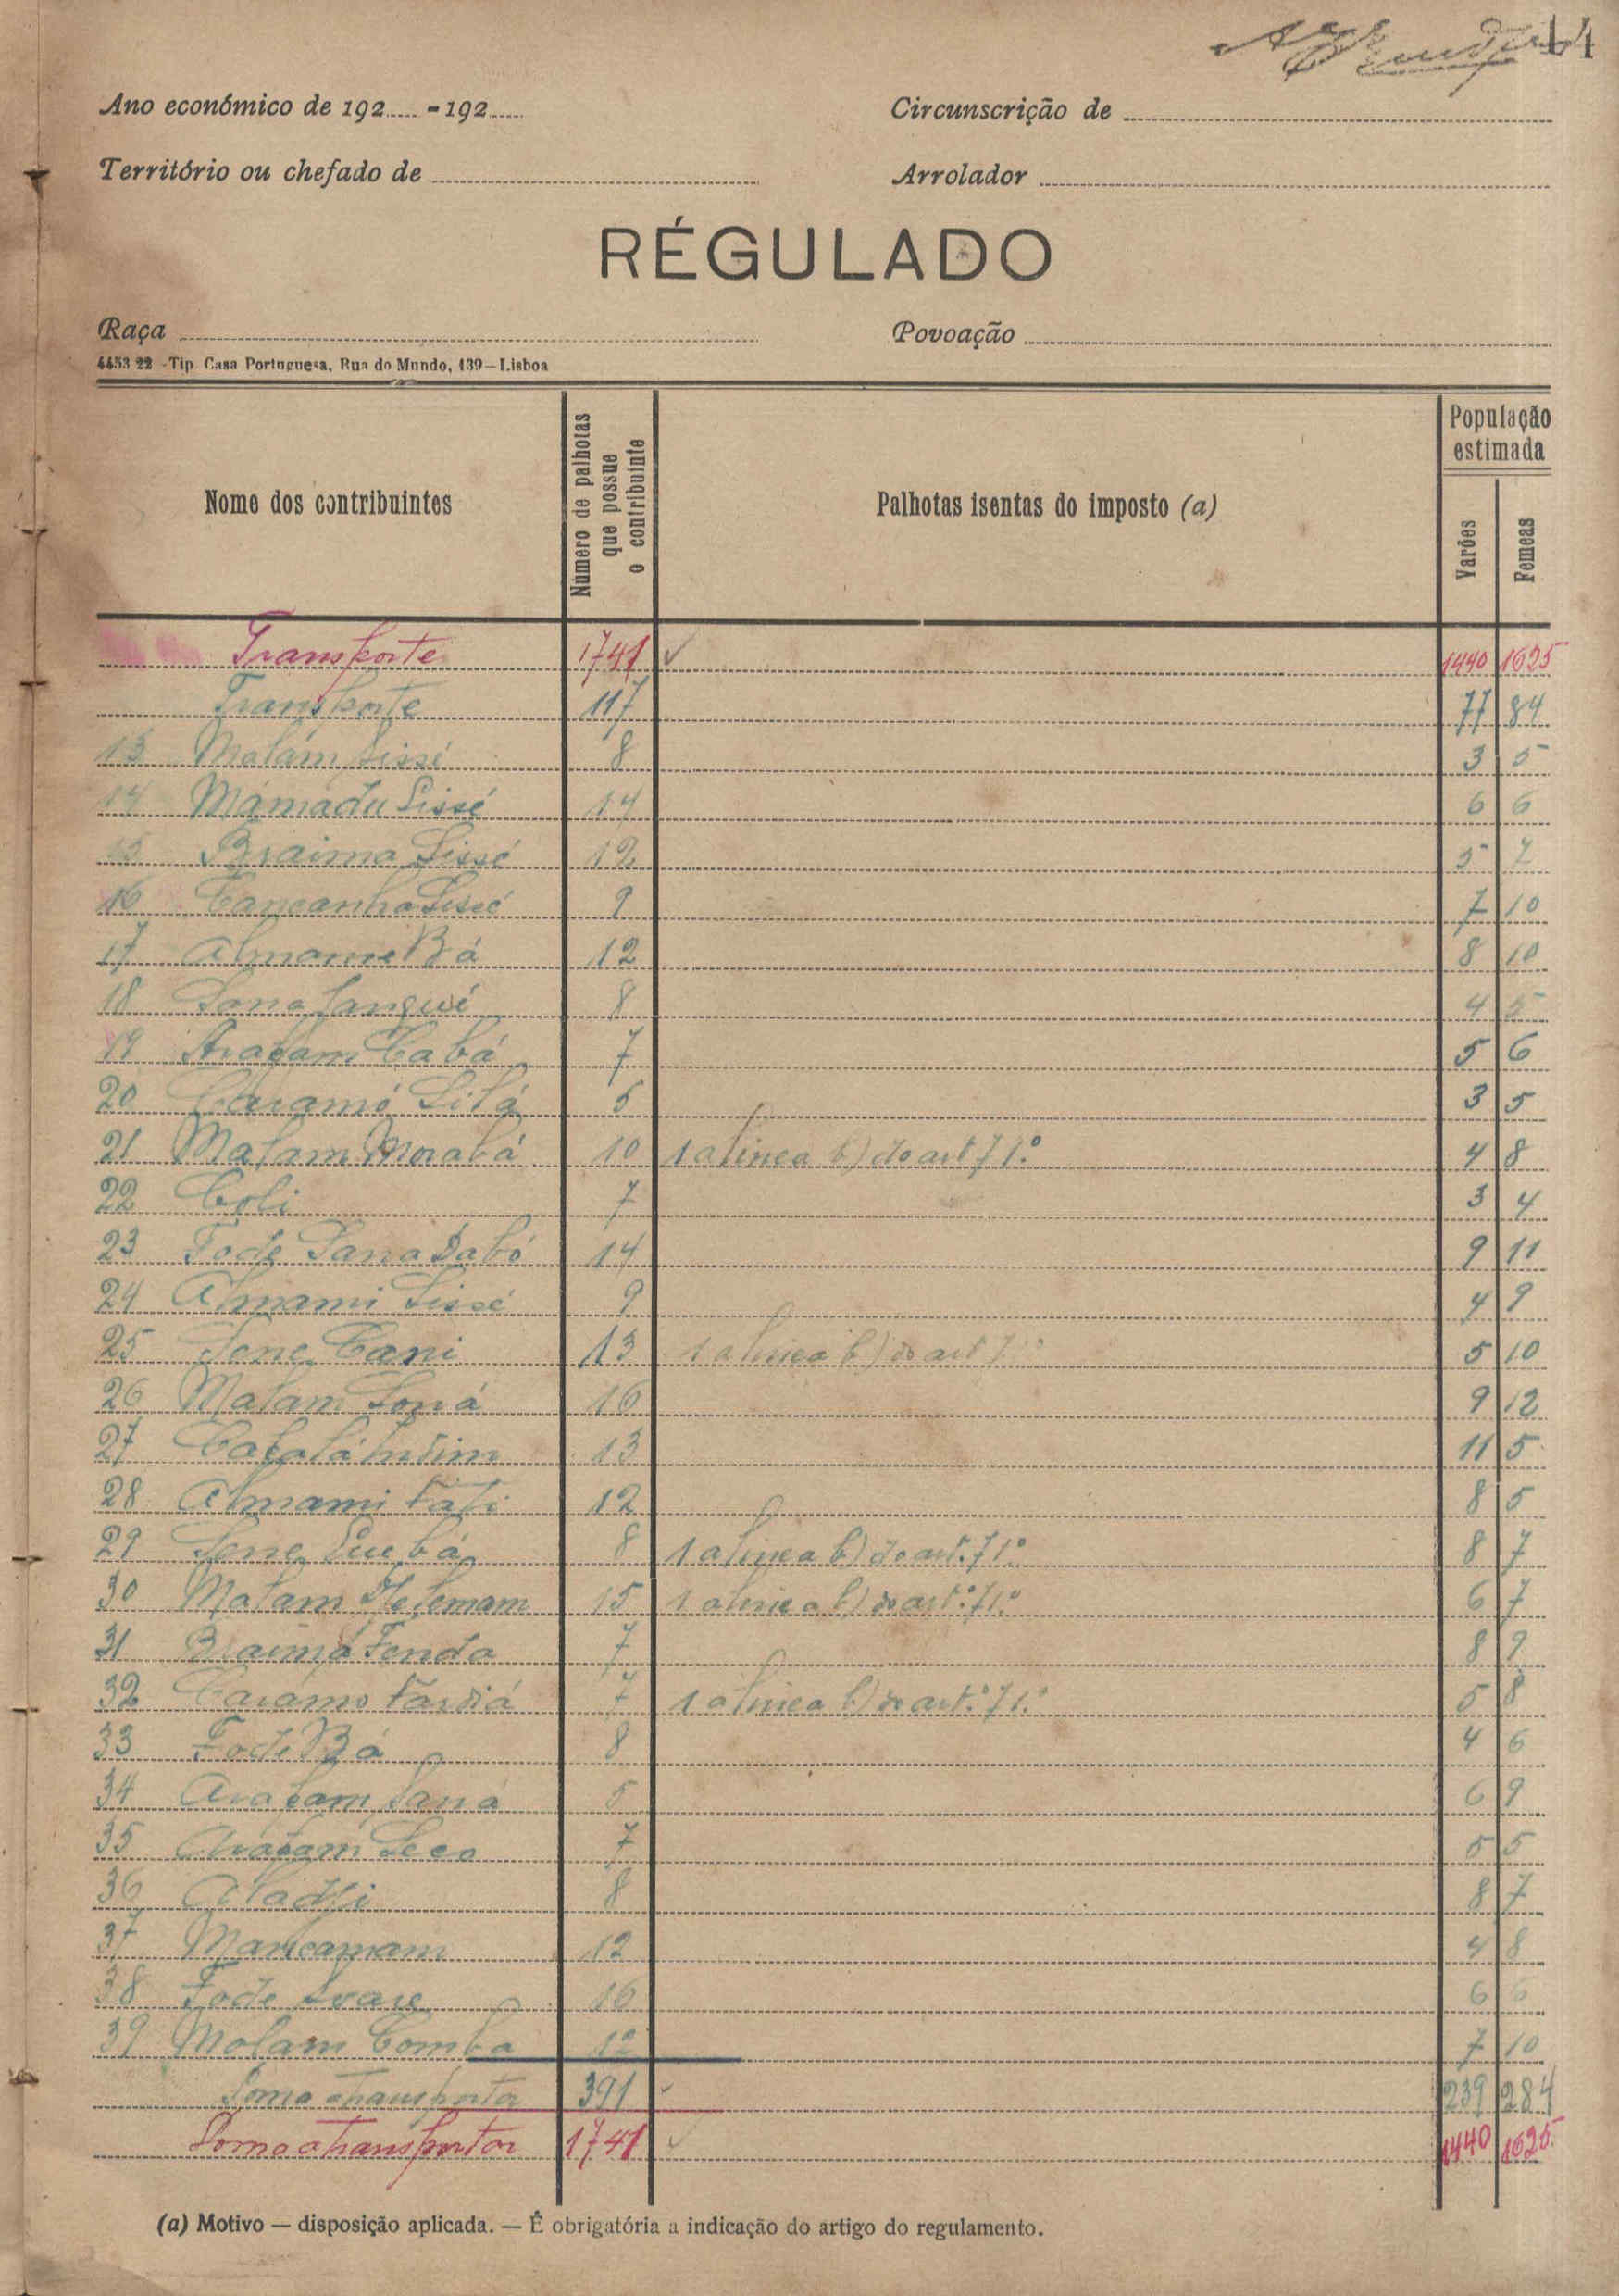 64
Ano económico de 192..... - 192.....
Circunscrição de
Território ou chefado de
Arrolador
RÉGULADO
Raça
Povoação
4453 22 - Tip. Casa Portuguesa, Rua do Mundo, 139 — Lisboa
Nome dos contribuintes | Número de palhotas que possue o contribuinte | Palhotas isentas do imposto (a) | População estimada | Varões | Femeas
Transporte 1741 ✓ 1440 1625
Transporte 117 77 84
13 Malám Sissé 8 3 5
14 Mámádu Sissé 14 6 6
15 Braima Sissé 12 5 7
16 Cancanha Sissé 9 7 10
17 Almame Bá 12 8 10
18 Sana 8 4 5
19 Arafam Cabá 7 5 6
20 Caramó Silá 5 3 5
21 Malam Morabá 10 1 alinea b) do art 71.º 4 8
22 Coli 7 3 4
23 Fode Sana Dabó 14 9 11
24 Almami Sissé 9 4 9
25 Sene Cani 13 1 alinea b) do art 71.º 5 10
26 Malam Soná 16 9 12
27 13 11 5
28 Almami Fati 12 8 5
29 Sene 8 1 alinea b) do art.º 71.º 8 7
30 Malam 15 1 alinea b) do art.º 71.º 6 7
31 Braima Fenda 7 8 9
32 Carámo 7 1 alinea b) do art.º 71.º 5 8
33 Fodé Bá 8 4 6
34 Arafam Saná 5 6 9
35 Arafam Seco 7 5 5
36 Aladji 8 8 7
37 12 4 8
38 Fode 16 6 6
39 Malam Comba 12 7 10
Soma a transportar 391 ✓ 239 284
Soma a transportar 1741 ✓ 1440 1625
(a) Motivo — disposição aplicada. — É obrigatória a indicação do artigo do regulamento.